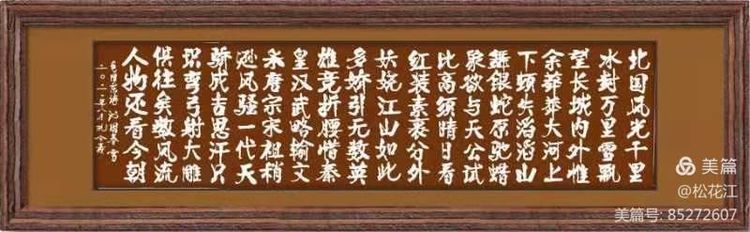 北国风光千里
冰封万里雪飘
望长城内外惟
余莽莽大河上
下顿失滔滔山
舞银蛇原驰蜡
象欲与天公试
比高须晴日看
红装素裹分外
妖娆江山如此
多娇引无数英
雄竞折腰惜秦
皇汉武略输文
采唐宗宋祖稍
逊风骚一代天
骄成吉思汗只
识弯弓射大雕
俱往矣数风流
人物还看今朝
毛泽东 沁园春 雪
美篇
@松花江
美篇号: 85272607